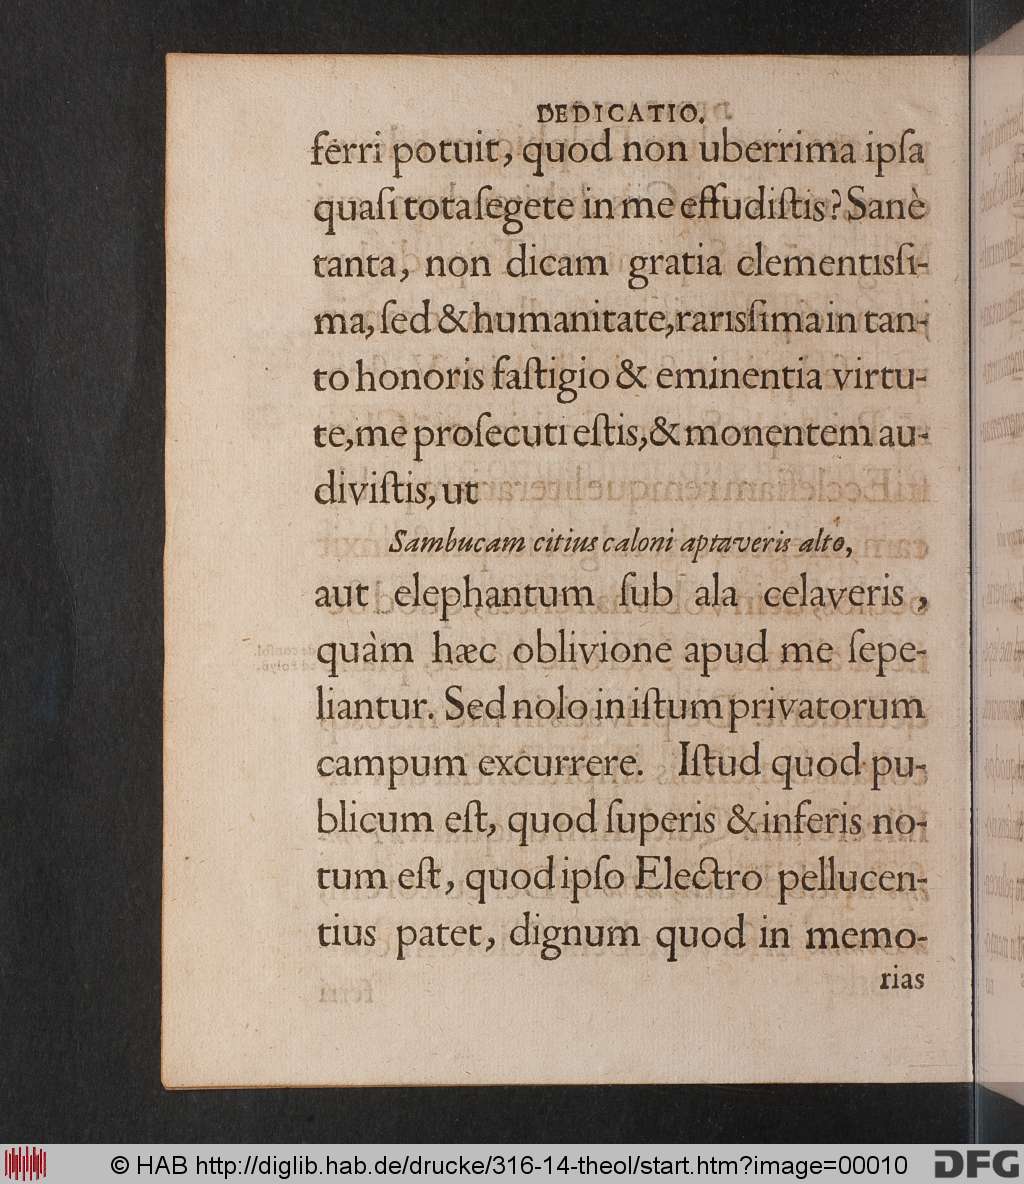 DEDICATIO.
ferri potuit, quod non uberrima ipſa
quaſi tota ſegete in me effudiſtis? Sanè
tanta, non dicam gratia clementisſi-
ma, ſed & humanitate, rarisſima in tan-
to honoris faſtigio & eminentia virtu-
te, me proſecuti eſtis, & monentem au-
diviſtis, ut
Sambucam citius caloni aptaveris alto,
aut elephantum ſub ala celaveris,
quàm hæc oblivione apud me ſepe-
liantur. Sed nolo in iſtum privatorum
campum excurrere. Iſtud quod pu-
blicum eſt, quod ſuperis & inferis no-
tum eſt, quod ipſo Electro pellucen-
tius patet, dignum quod in memo-
rias
© HAB http://diglib.hab.de/drucke/316-14-theol/start.htm?image=00010
DFG